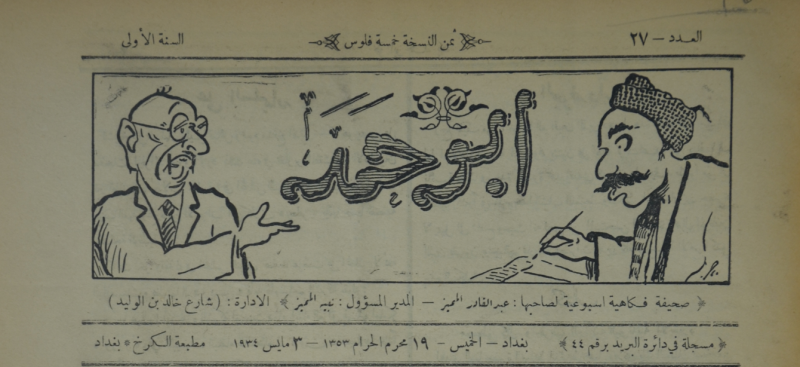 العـدد — ٢٧ ثمن النسخة خمسة فلوس السنة الأولى
أبو حمد
﴿ صحيفة فكاهية اسبوعية لصاحبها : عبدالقادر المميز — المدير المسؤول : نبيه المميز ﴾ الادارة : ( شارع خالد بن الوليد )
﴿ مسجلة في دائرة البريد برقم ٤٤ ﴾ بغداد — الخميس - ١٩ محرم الحرام ١٣٥٣ — ٣ مايس ١٩٣٤ مطبعة الكرخ * بغداد